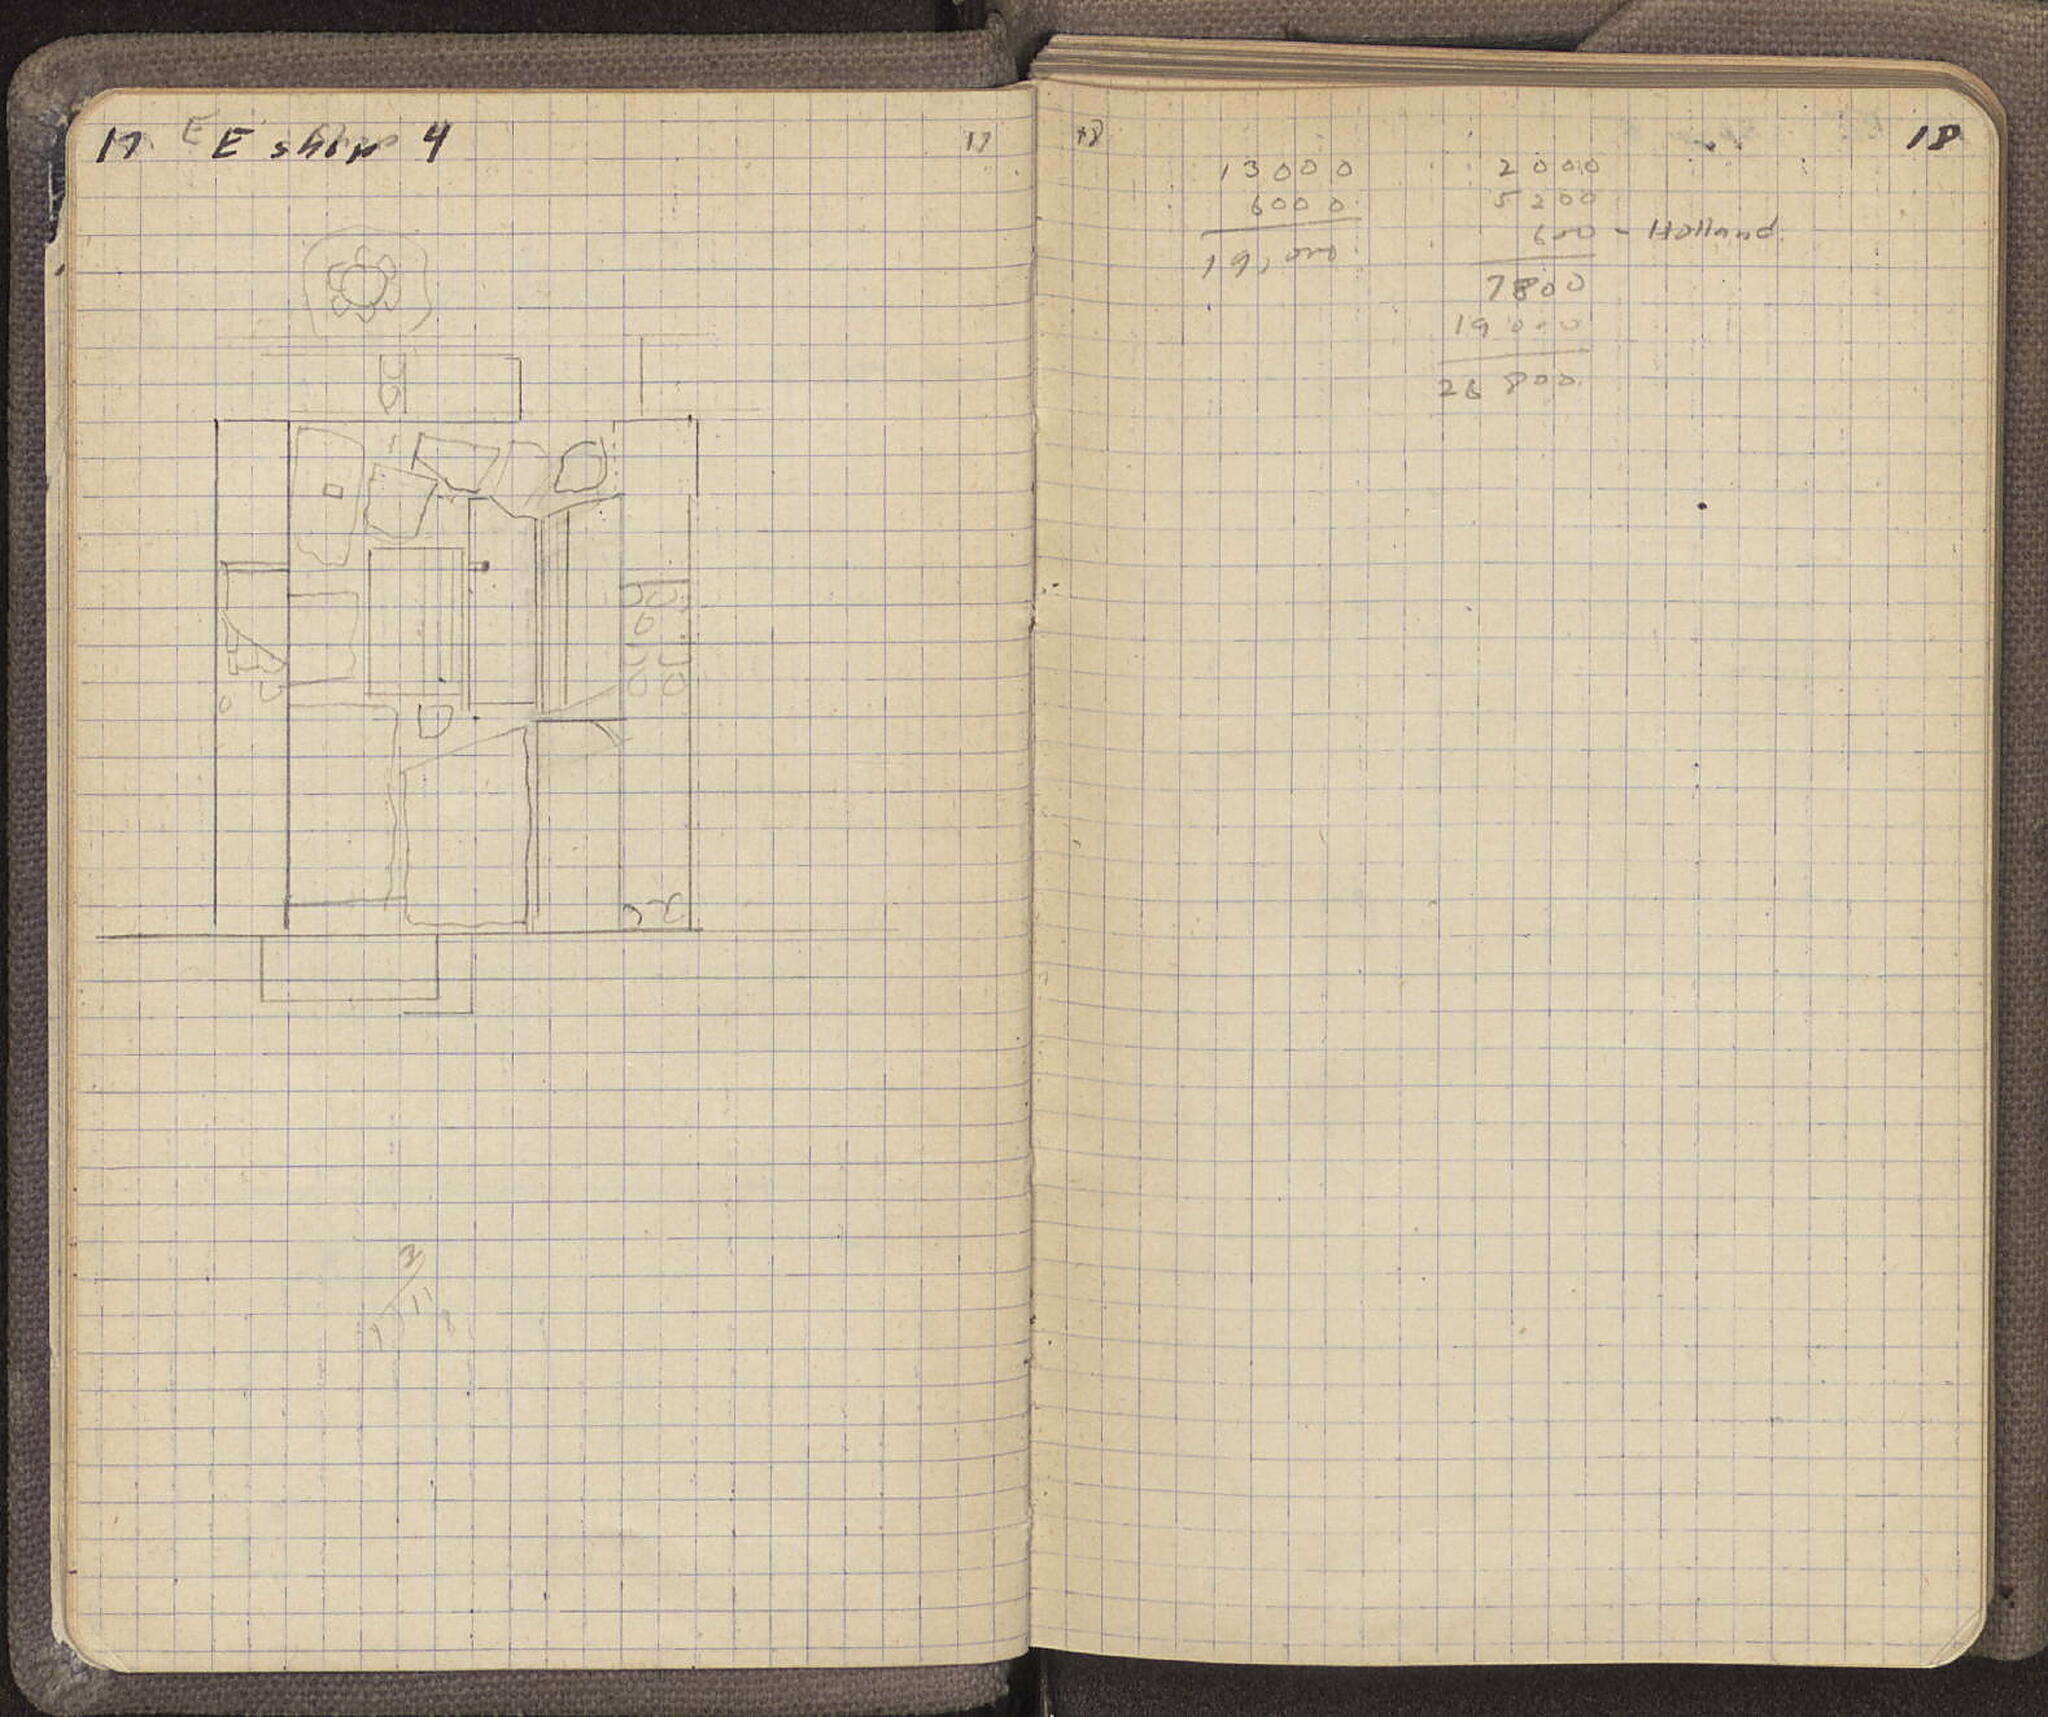 17 E E shop 4 17
3
11
18 18
13000
6000
19,000
2000
5200
600 - Holland
7800
19000
26 800